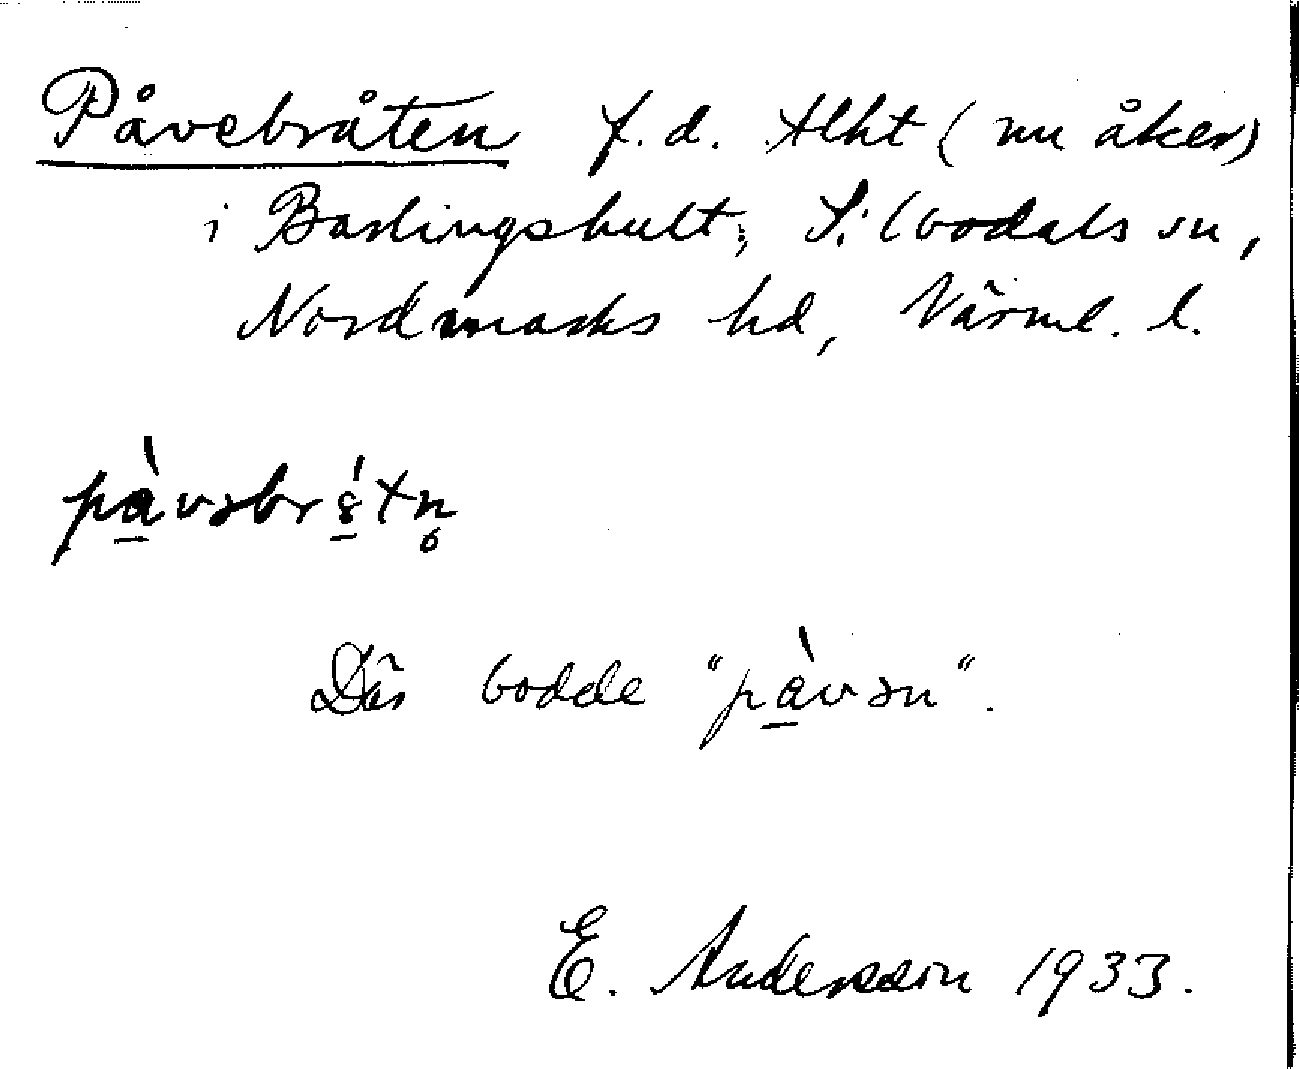 Påvebråten f.d. tlht (nu åker)
i Barlingshult, Silbodals sn,
Nordmarks hd, Värml. l.
pàvəbrátn̥
Där bodde "pàvən".
E. Andersson 1933.